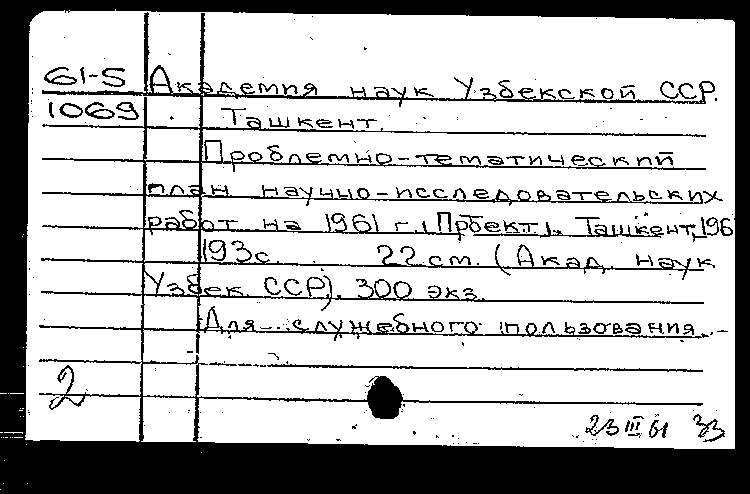 61-5 Академия наук Узбекской ССР.
1069 Ташкент.
Проблемно-тематический
план научно-исследовательских
работ на 1961 г. (Проект). Ташкент, 196
193с. 22 см. (Акад. наук
Узбек ССР). 300 экз.
Для служебного пользования.
2
23 III 61 33